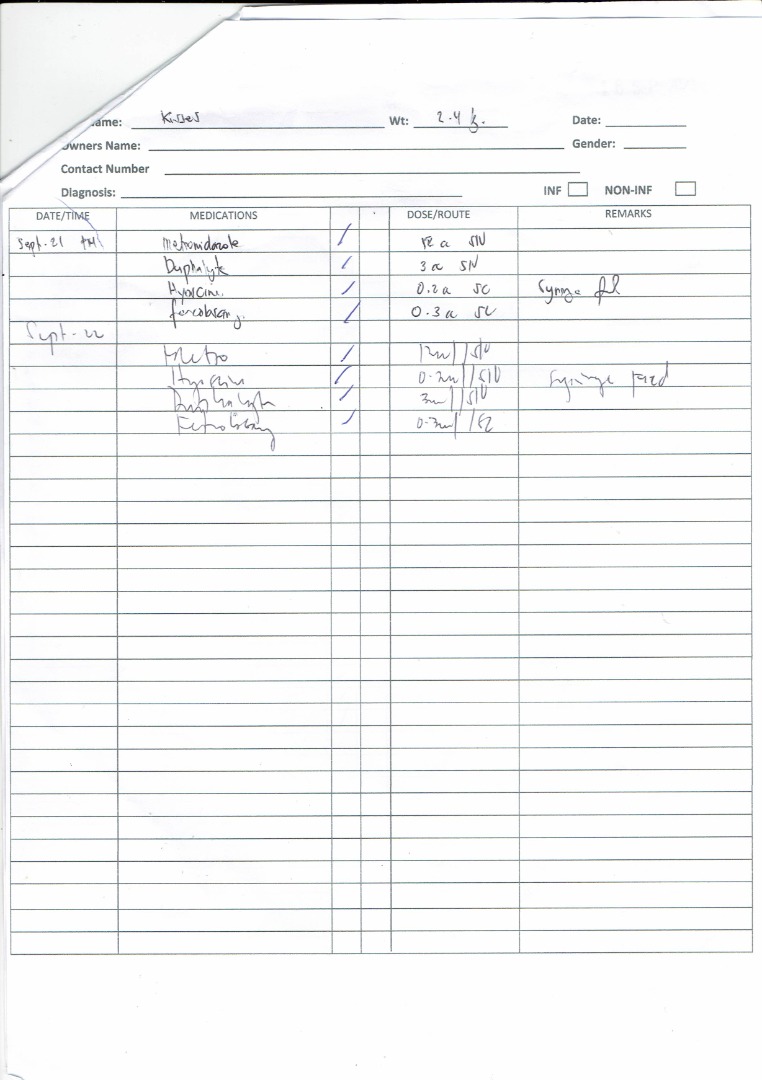 ame: Kisses Wt: 2.4 kg. Date:
wners Name: Gender:
Contact Number
Diagnosis: INF NON-INF
DATE/TIME MEDICATIONS DOSE/ROUTE REMARKS
Sept. 21 PM Metronidazole / SIV
Duphalyte / 3 cc SIV
Hyoscine. / 0.2 cc SC Syringe
/ 0.3 cc SC
Sept-22
Metro / 12ml/SIV
/ SIV Syringe Feed
Duphalyte / 3ml/SIV
/ 0.3ml